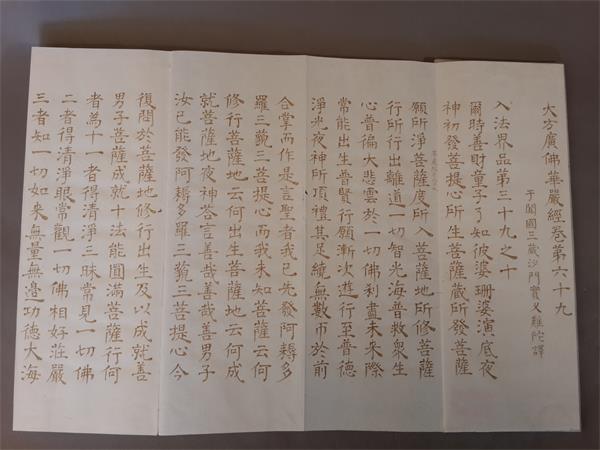 大方廣佛華嚴經卷第六十九
于闐國三藏沙門實叉難陀譯
入法界品第三十九之十
爾時善財童子了知彼婆珊婆演底夜
神初發菩提心所生菩薩藏所發菩薩
願所淨菩薩度所入菩薩地所修菩薩
行所行出離道一切智光海普救衆生
心普徧大悲雲於一切佛刹盡未來際
常能出生普賢行願漸次遊行至普德
淨光夜神所頂禮其足繞無數帀於前
合掌而作是言聖者我已先發阿耨多
羅三藐三菩提心而我未知菩薩云何
修行菩薩地云何出生菩薩地云何成
就菩薩地夜神答言善哉善哉善男子
汝已能發阿耨多羅三藐三菩提心今
復問於菩薩地修行出生及以成就善
男子菩薩成就十法能圓滿菩薩行何
者為十一者得清淨三昧常見一切佛
二者得清淨眼常觀一切佛相好莊嚴
三者知一切如來無量無邊功德大海